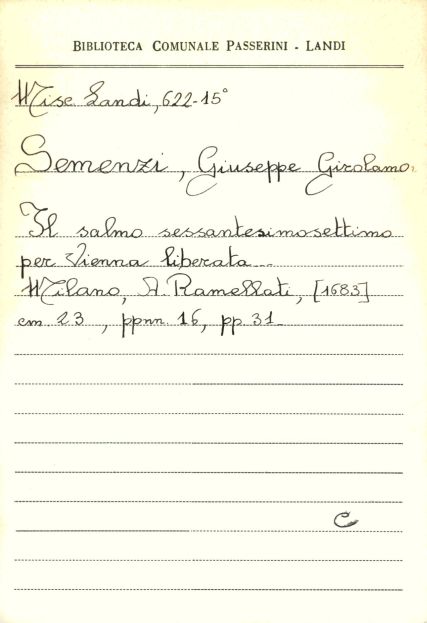 BIBLIOTECA COMUNALE PASSERINI - LANDI
Misc. Landi, 622-15°
Semenzi, Giuseppe Girolamo.
Il salmo sessantesimosettimo
per Vienna liberata...
Milano, A. Ramellati, [1683]
cm. 23, ppnn. 16, pp. 31.
C